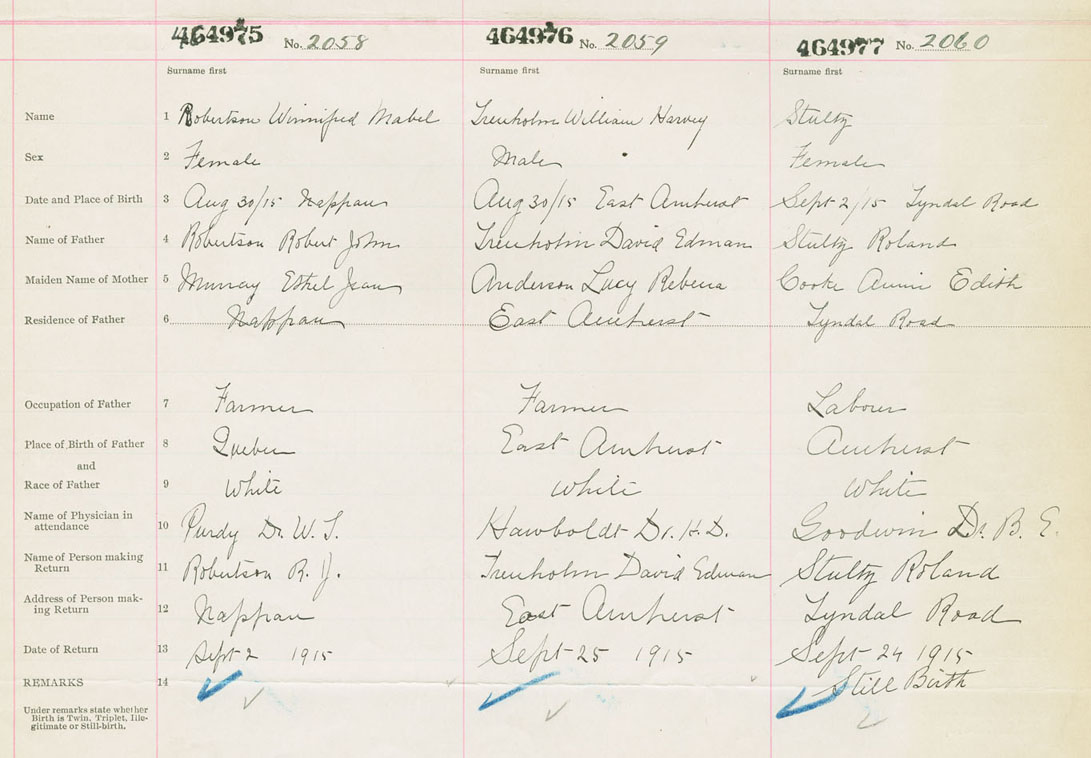 464975 No. 2058 464976 No. 2059 464977 No. 2060
Surname first Surname first Surname first
Name 1 Robertson Winnifred Mabel Trenholm William Harvey Stulty
Sex 2 Female Male Female
Date and Place of Birth 3 Aug 30/15 Nappan Aug 30/15 East Amherst Sept 2/15 Tyndal Road
Name of Father 4 Robertson Robert John Trenholm David Edman Stulty Roland
Maiden Name of Mother 5 Murray Ethel Jean Anderson Lucy Rebecca Cooke Edith
Residence of Father 6 Nappan East Amherst Tyndal Road
Occupation of Father 7 Farmer Farmer Labour
Place of Birth of Father 8 Quebec East Amherst Amherst
and
Race of Father 9 White White White
Name of Physician in
attendance 10 Purdy Dr. W. T. Hawboldt Dr. H. D. Goodwin Dr. B. E.
Name of Person making
Return 11 Robertson R. J. Trenholm David Edman Stulty Roland
Address of Person mak-
ing Return 12 Nappan East Amherst Tyndal Road
Date of Return 13 Sept 2 1915 Sept 25 1915 Sept 24 1915
REMARKS 14 Still Birth
Under remarks state whether
Birth is Twin, Triplet, Ille-
gitimate or Still-birth.